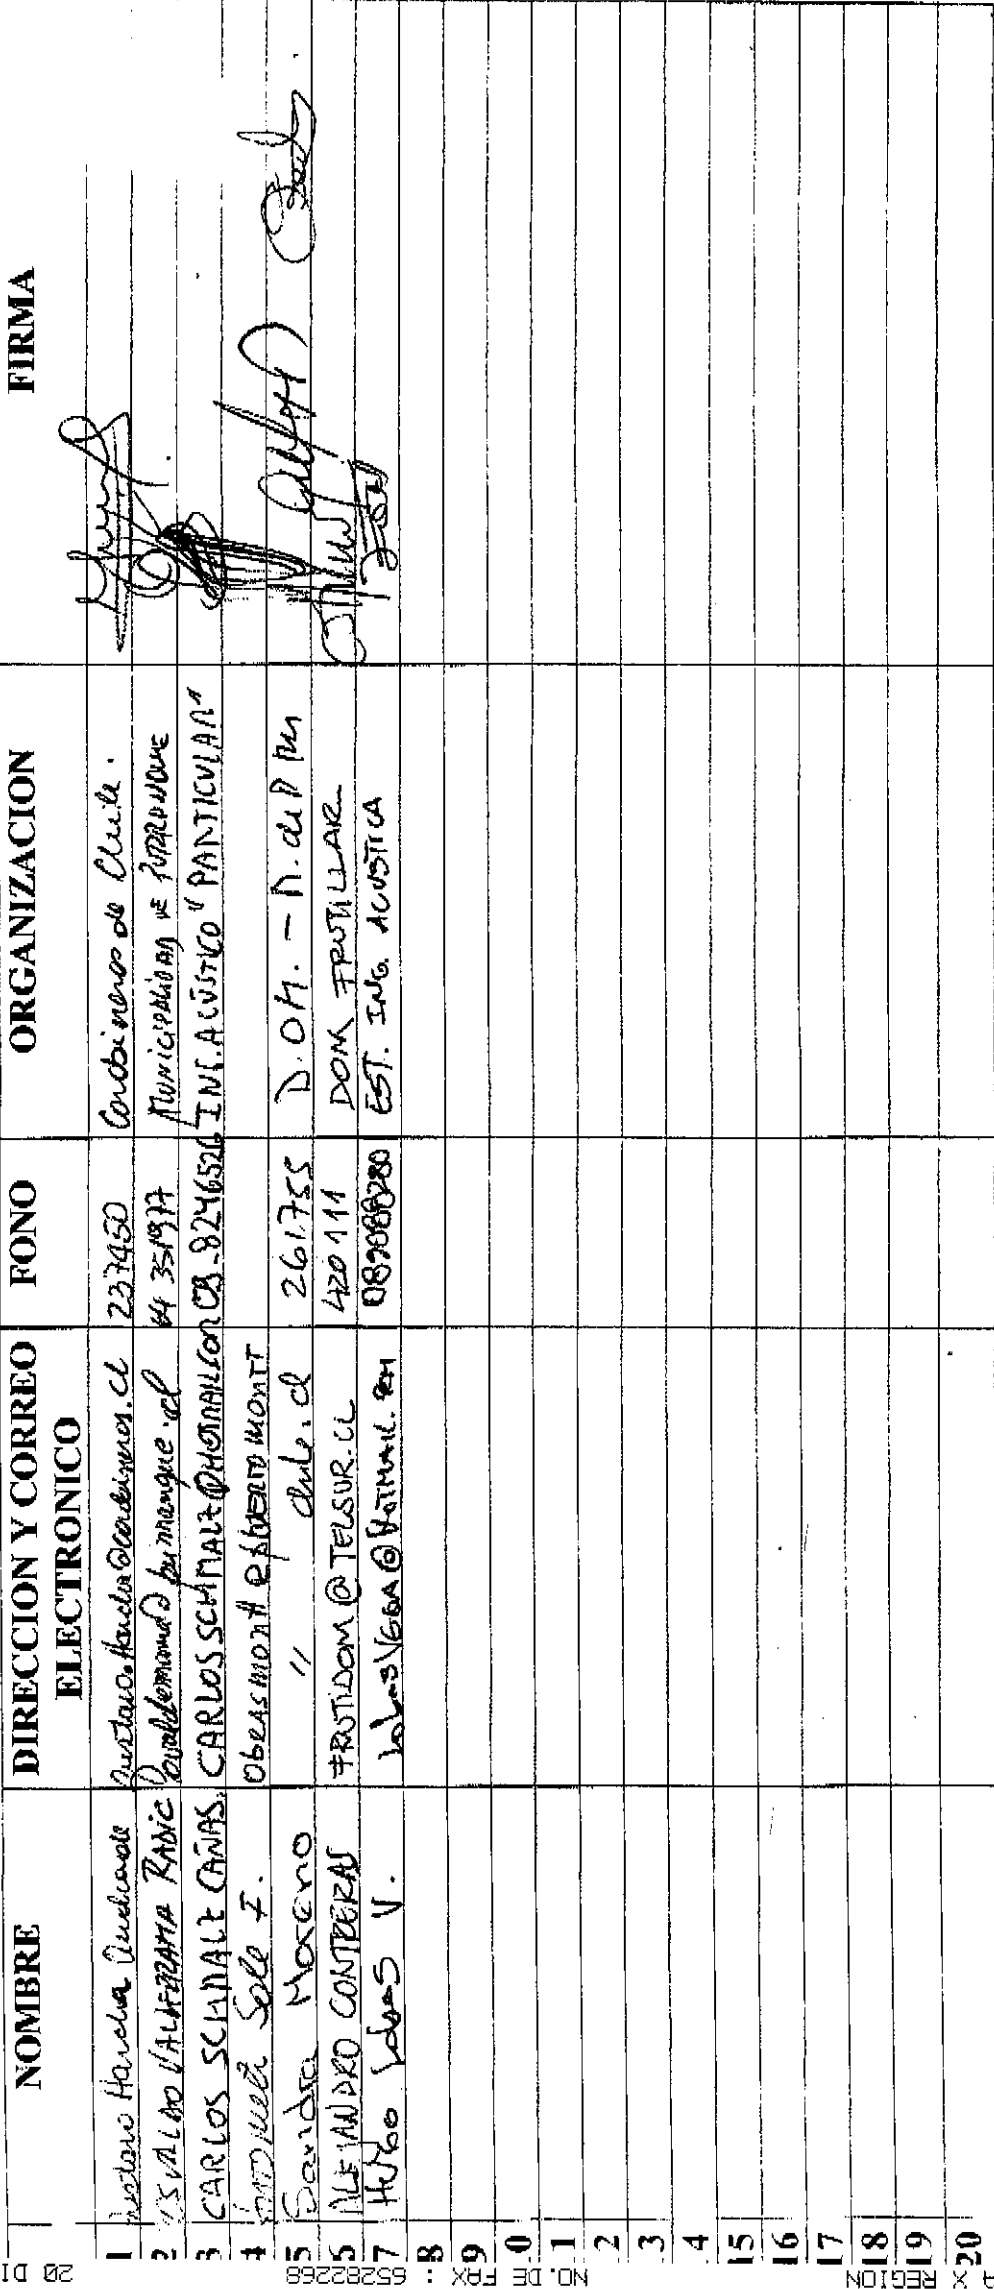 NOMBRE DIRECCION Y CORREO ELECTRONICO FONO ORGANIZACION FIRMA
1 Gustavo Harcha Andrade Gustavo.Harcha@carabineros.cl 237450 Carabineros de Chile.
2 VALDERRAMA RADIC 64 351977 MUNICIPALIDAD DE PURRANQUE
3 CARLOS SCHMALZ CAÑAS. CARLOSSCHMALZ@HOTMAIL.COM 09-8246526 ING. ACÚSTICO "PARTICULAR"
4 Sole F. Obrasmontt @puertomontt
5 Sandra Moreno " chile.cl 261755 D.O.M. -
6 ALEJANDRO CONTRERAS FRUTIDOM@TELSUR.CL 420111 DOM FRUTILLAR
7 HUGO Lobos V. LobosVEGA@HOTMAIL.COM EST. ING. ACUSTICA
8
9
0
1
2
3
4
15
16
17
18
19
20
20 DI
NO. DE FAX : 65282268
A X REGION